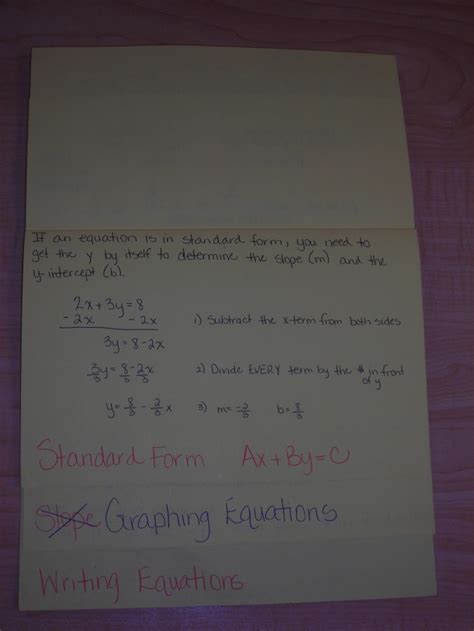 If an equation is in standard form, you need to
get the y by itself to determine the slope (m) and the
y-intercept (b).
2x + 3y = 8
-2x -2x 1) Subtract the x-term from both sides
3y = 8 - 2x
3y/3 = 8/3 - 2x/3 2) Divide EVERY term by the # in front of y
y = 8/3 - 2/3 x 3) m = -2/3 b = 8/3
Standard Form Ax + By = C
Slope Graphing Equations
Writing Equations